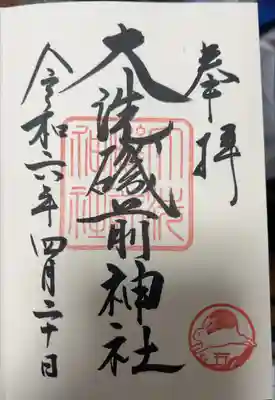 奉拝
大洗磯前神社
令和六年四月二十日